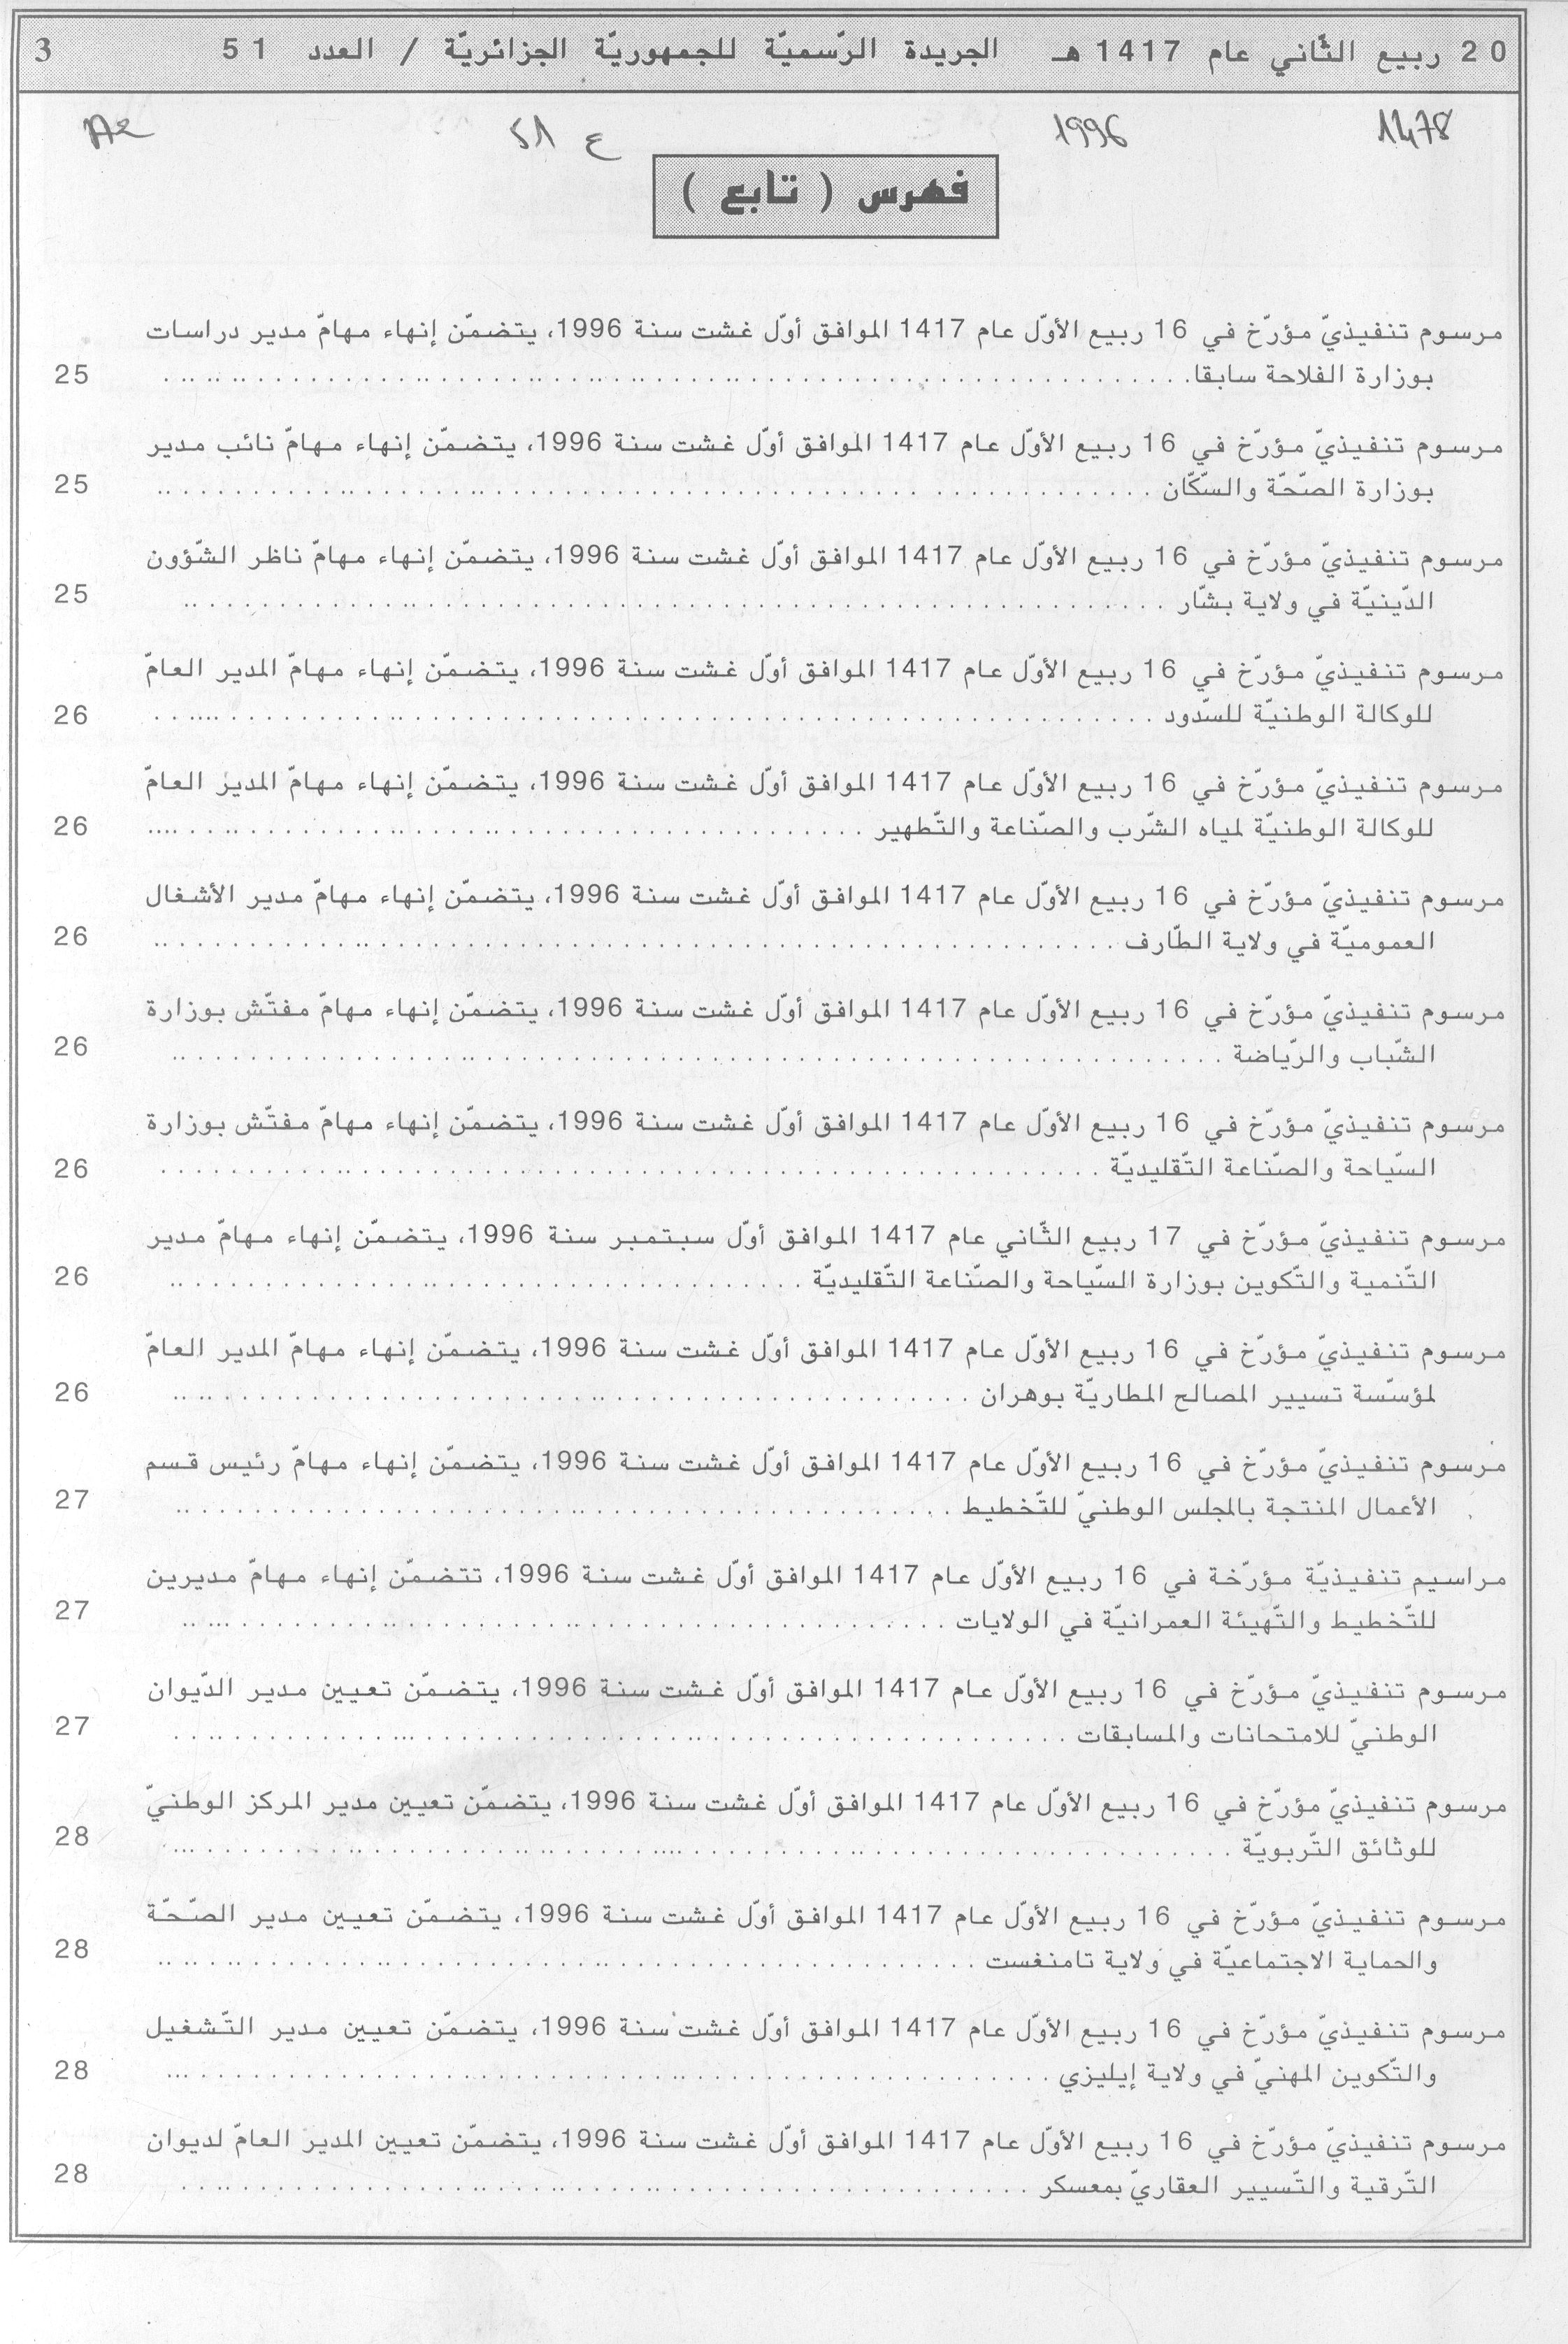 20 ربيع الثّاني عام 1417 هـ الجريدة الرّسميّة للجمهوريّة الجزائريّة / العدد 51 3
1478 1996 ع 51
فهرس ( تابع )
مرسوم تنفيذيّ مؤرّخ في 16 ربيع الأوّل عام 1417 الموافق أوّل غشت سنة 1996، يتضمّن إنهاء مهامّ مدير دراسات
بوزارة الفلاحة سابقا 25
مرسوم تنفيذيّ مؤرّخ في 16 ربيع الأوّل عام 1417 الموافق أوّل غشت سنة 1996، يتضمّن إنهاء مهامّ نائب مدير
بوزارة الصّحّة والسّكّان 25
مرسوم تنفيذيّ مؤرّخ في 16 ربيع الأوّل عام 1417 الموافق أوّل غشت سنة 1996، يتضمّن إنهاء مهامّ ناظر الشّؤون
الدّينيّة في ولاية بشّار 25
مرسوم تنفيذيّ مؤرّخ في 16 ربيع الأوّل عام 1417 الموافق أوّل غشت سنة 1996، يتضمّن إنهاء مهامّ المدير العامّ
للوكالة الوطنيّة للسّدود 26
مرسوم تنفيذيّ مؤرّخ في 16 ربيع الأوّل عام 1417 الموافق أوّل غشت سنة 1996، يتضمّن إنهاء مهامّ المدير العامّ
للوكالة الوطنيّة لمياه الشّرب والصّناعة والتّطهير 26
مرسوم تنفيذيّ مؤرّخ في 16 ربيع الأوّل عام 1417 الموافق أوّل غشت سنة 1996، يتضمّن إنهاء مهامّ مدير الأشغال
العموميّة في ولاية الطّارف 26
مرسوم تنفيذيّ مؤرّخ في 16 ربيع الأوّل عام 1417 الموافق أوّل غشت سنة 1996، يتضمّن إنهاء مهامّ مفتّش بوزارة
الشّباب والرّياضة 26
مرسوم تنفيذيّ مؤرّخ في 16 ربيع الأوّل عام 1417 الموافق أوّل غشت سنة 1996، يتضمّن إنهاء مهامّ مفتّش بوزارة
السّياحة والصّناعة التّقليديّة 26
مرسوم تنفيذيّ مؤرّخ في 17 ربيع الثّاني عام 1417 الموافق أوّل سبتمبر سنة 1996، يتضمّن إنهاء مهامّ مدير
التّنمية والتّكوين بوزارة السّياحة والصّناعة التّقليديّة 26
مرسوم تنفيذيّ مؤرّخ في 16 ربيع الأوّل عام 1417 الموافق أوّل غشت سنة 1996، يتضمّن إنهاء مهامّ المدير العامّ
لمؤسّسة تسيير المصالح المطاريّة بوهران 26
مرسوم تنفيذيّ مؤرّخ في 16 ربيع الأوّل عام 1417 الموافق أوّل غشت سنة 1996، يتضمّن إنهاء مهامّ رئيس قسم
الأعمال المنتجة بالمجلس الوطنيّ للتّخطيط 27
مراسيم تنفيذيّة مؤرّخة في 16 ربيع الأوّل عام 1417 الموافق أوّل غشت سنة 1996، تتضمّن إنهاء مهامّ مديرين
للتّخطيط والتّهيئة العمرانيّة في الولايات 27
مرسوم تنفيذيّ مؤرّخ في 16 ربيع الأوّل عام 1417 الموافق أوّل غشت سنة 1996، يتضمّن تعيين مدير الدّيوان
الوطنيّ للامتحانات والمسابقات 27
مرسوم تنفيذيّ مؤرّخ في 16 ربيع الأوّل عام 1417 الموافق أوّل غشت سنة 1996، يتضمّن تعيين مدير المركز الوطنيّ
للوثائق التّربويّة 28
مرسوم تنفيذيّ مؤرّخ في 16 ربيع الأوّل عام 1417 الموافق أوّل غشت سنة 1996، يتضمّن تعيين مدير الصّحّة
والحماية الاجتماعيّة في ولاية تامنغست 28
مرسوم تنفيذيّ مؤرّخ في 16 ربيع الأوّل عام 1417 الموافق أوّل غشت سنة 1996، يتضمّن تعيين مدير التّشغيل
والتّكوين المهنيّ في ولاية إيليزي 28
مرسوم تنفيذيّ مؤرّخ في 16 ربيع الأوّل عام 1417 الموافق أوّل غشت سنة 1996، يتضمّن تعيين المدير العامّ لديوان
التّرقية والتّسيير العقاريّ بمعسكر 28